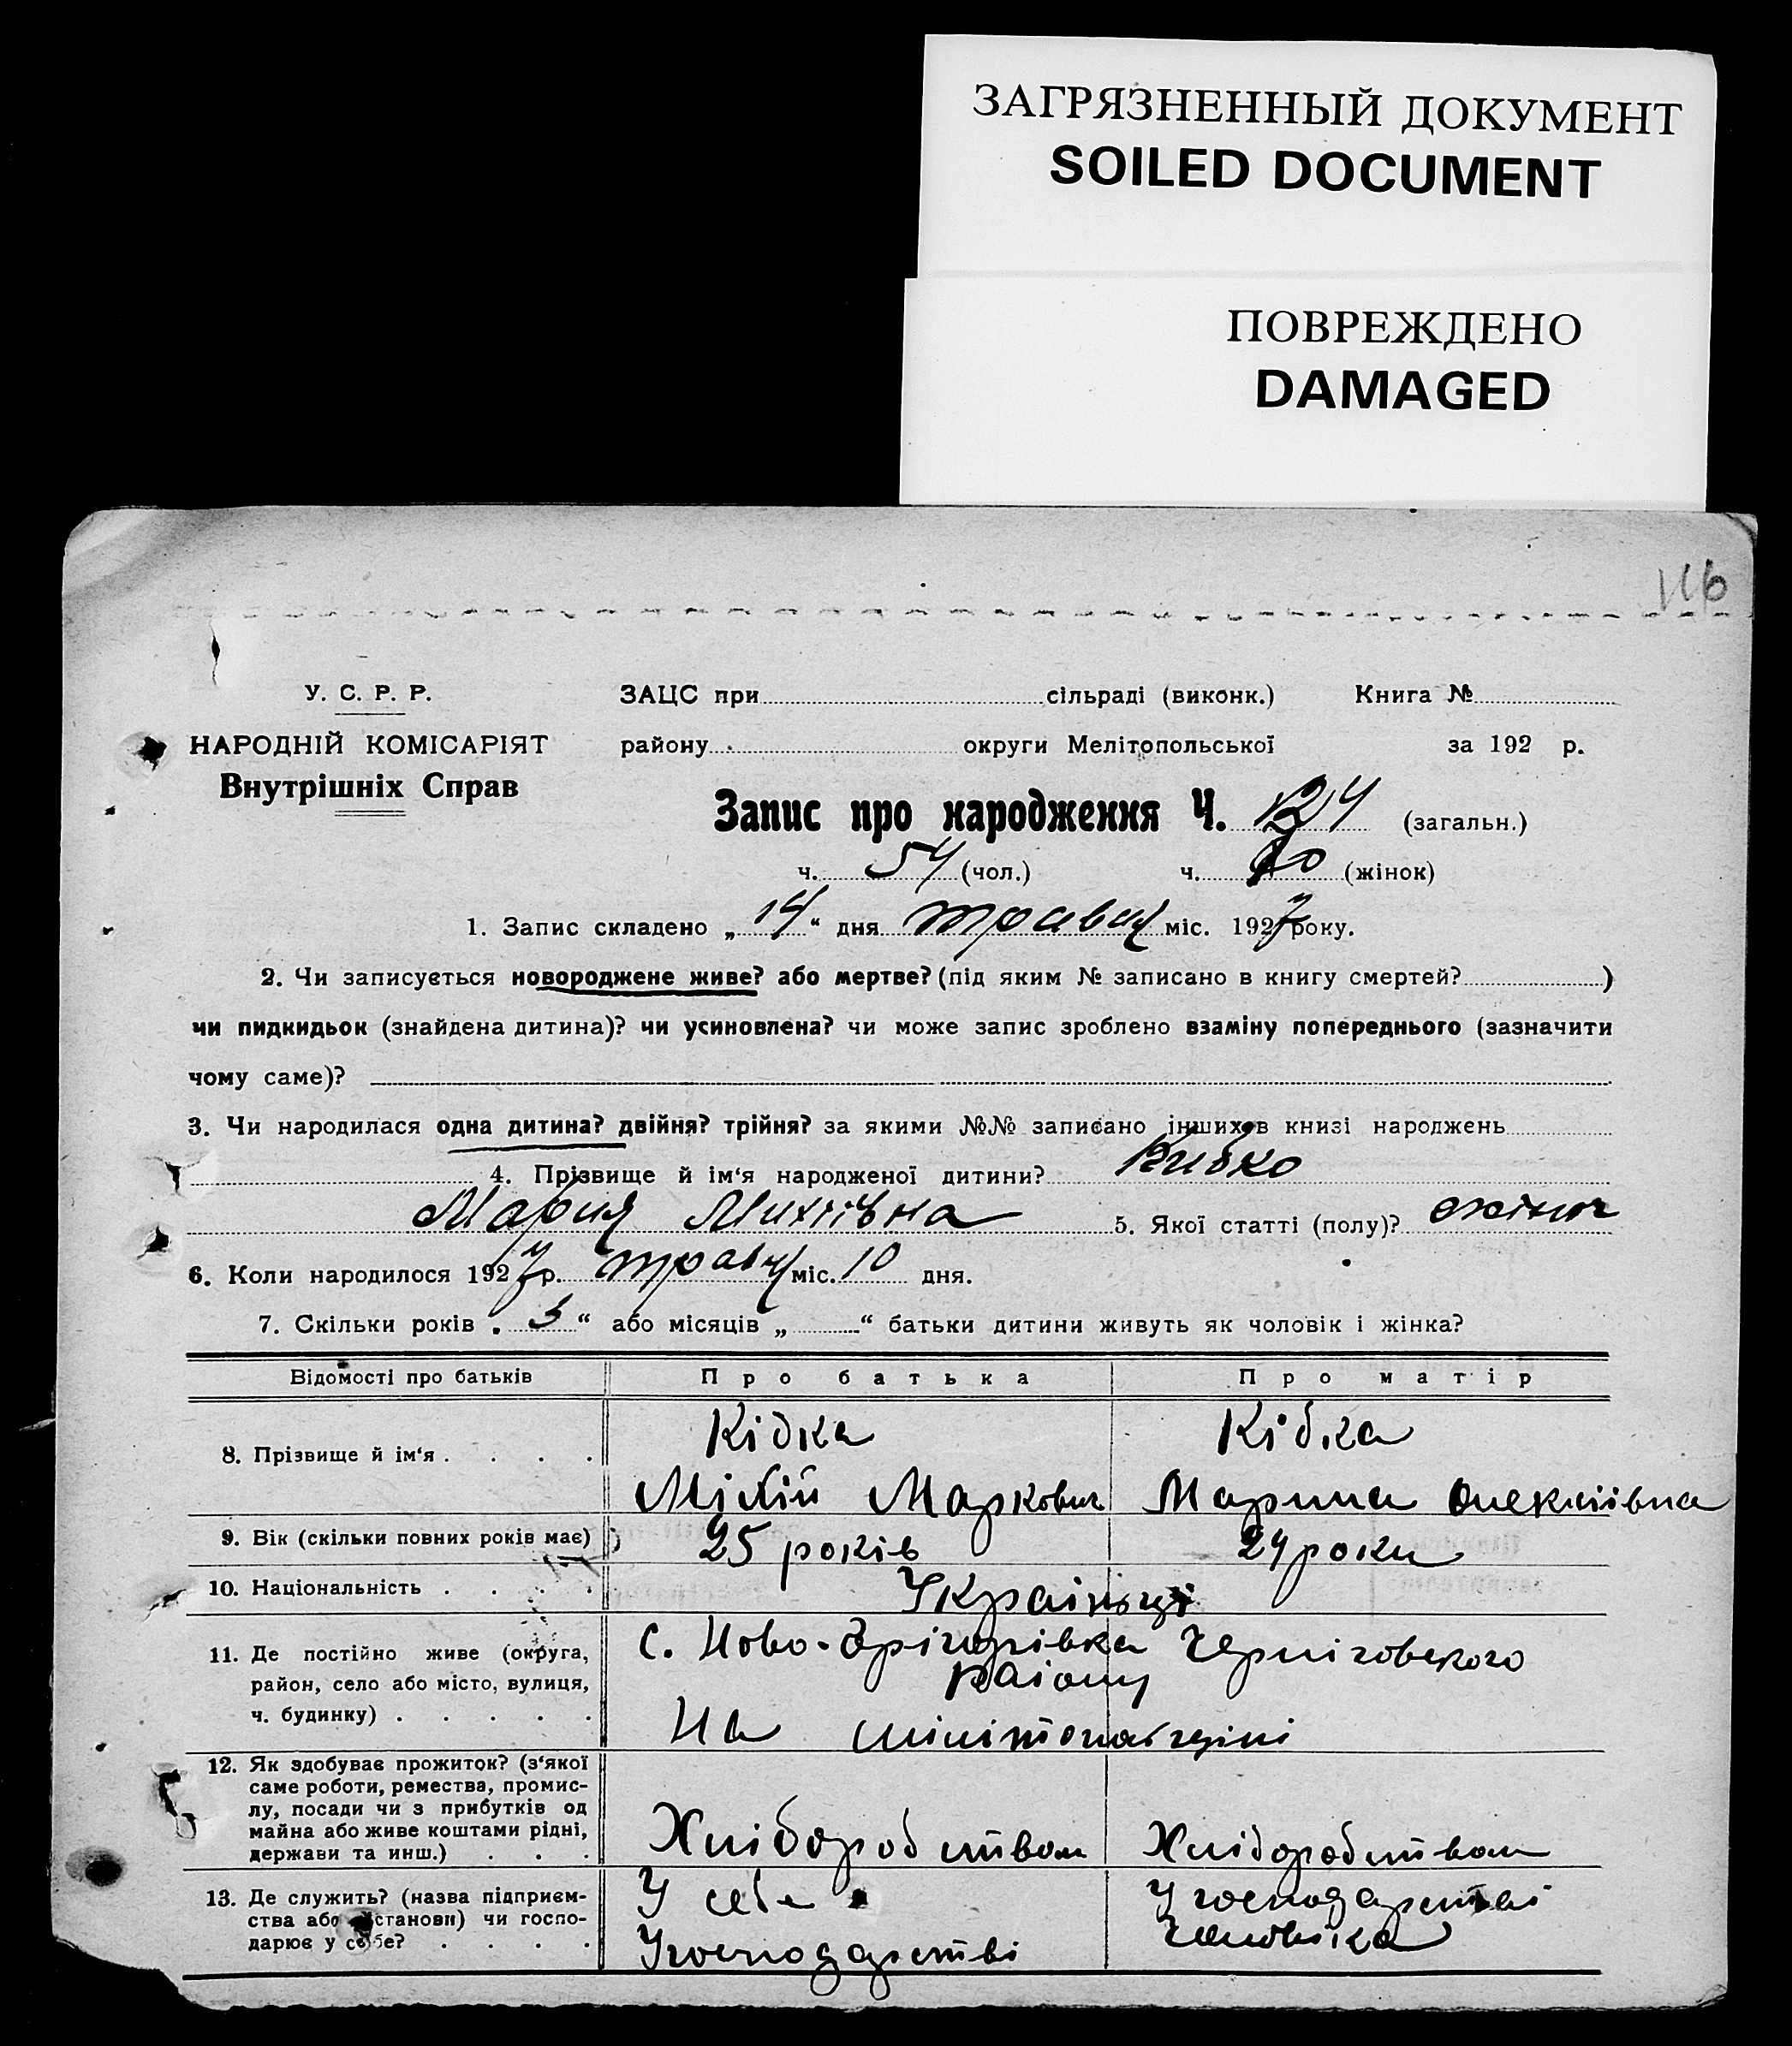 ЗАГРЯЗНЕННЫЙ ДОКУМЕНТ
SOILED DOCUMENT
ПОВРЕЖДЕНО
DAMAGED
116
У. С. Р. Р.
ЗАЦС при сільраді (виконк.) Книга №
НАРОДНІЙ КОМІСАРІЯТ
району округи Мелітопольської за 192 р.
Внутрішніх Справ
Запис про народження Ч. 124 (загальн.)
ч. 54 (чол.) ч. 70 (жінок)
1. Запис складено „14“ дня травня міс. 1927 року.
2. Чи записується новороджене живе? або мертве? (під яким № записано в книгу смертей? )
чи пидкидьок (знайдена дитина)? чи усиновлена? чи може запис зроблено взаміну попереднього (зазначити
чому саме)?
3. Чи народилася одна дитина? двійня? трійня? за якими №№ записано інших в книзі народжень
4. Прізвище й ім‘я народженої дитини? Кибко
Мария 5. Якої статті (полу)? жіноч
6. Коли народилося 1927 р. травня міс. 10 дня.
7. Скільки років „3“ або місяців „ “ батьки дитини живуть як чоловік і жінка?
Відомості про батьків Про батька Про матір
8. Прізвище й ім‘я . . . . Кібка Кібка
Маркович Марина Олексіївна
9. Вік (скільки повних років має) 25 років 24 роки
10. Національність . . . . Українці
11. Де постійно живе (округа,
район, село або місто, вулиця,
ч. будинку) . . . . .
с. Ново-Григорівка Черніговського
району
На
12. Як здобуває прожиток? (з‘якої
саме роботи, ремества, промис-
лу, посади чи з прибутків од
майна або живе коштами рідні,
держави та инш.) . . .
Хліборобством Хліборобством
13. Де служить? (назва підприєм-
ства або установи) чи госпо-
дарює у себе? . . . .
У себе
У господарстві
У господарстві
чоловіка